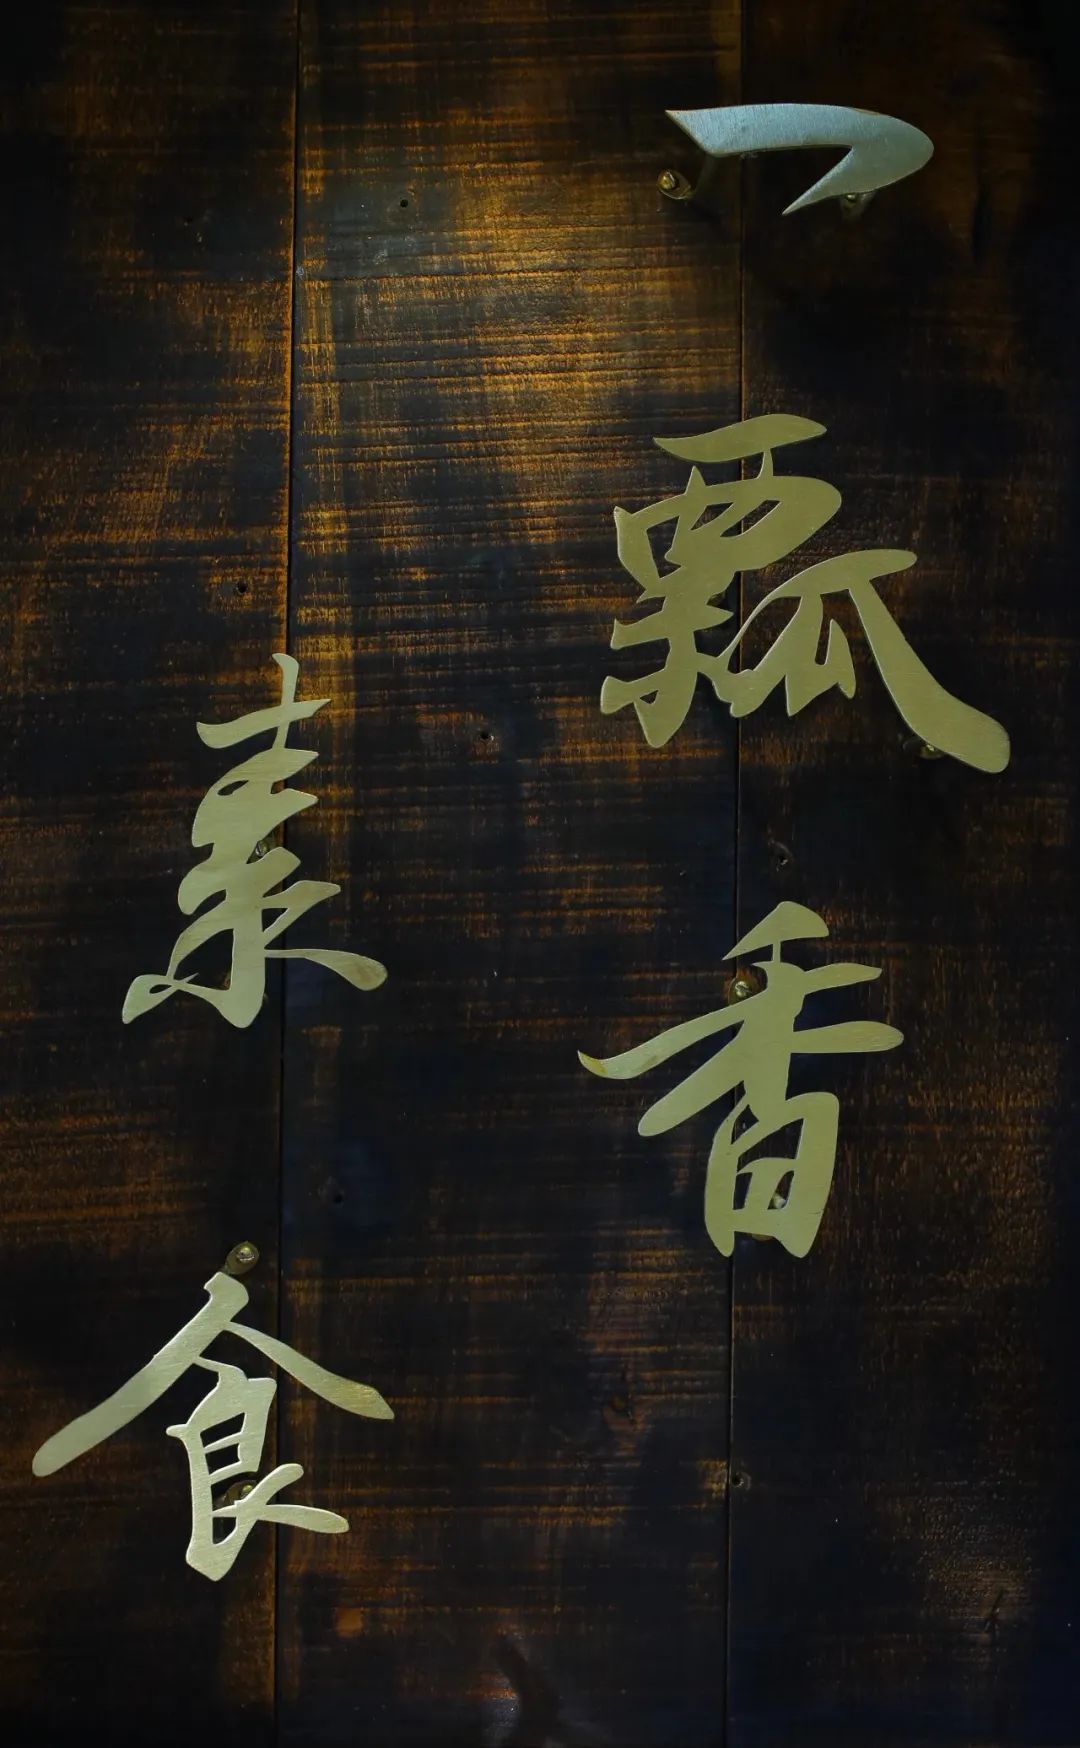 一瓢香
素食